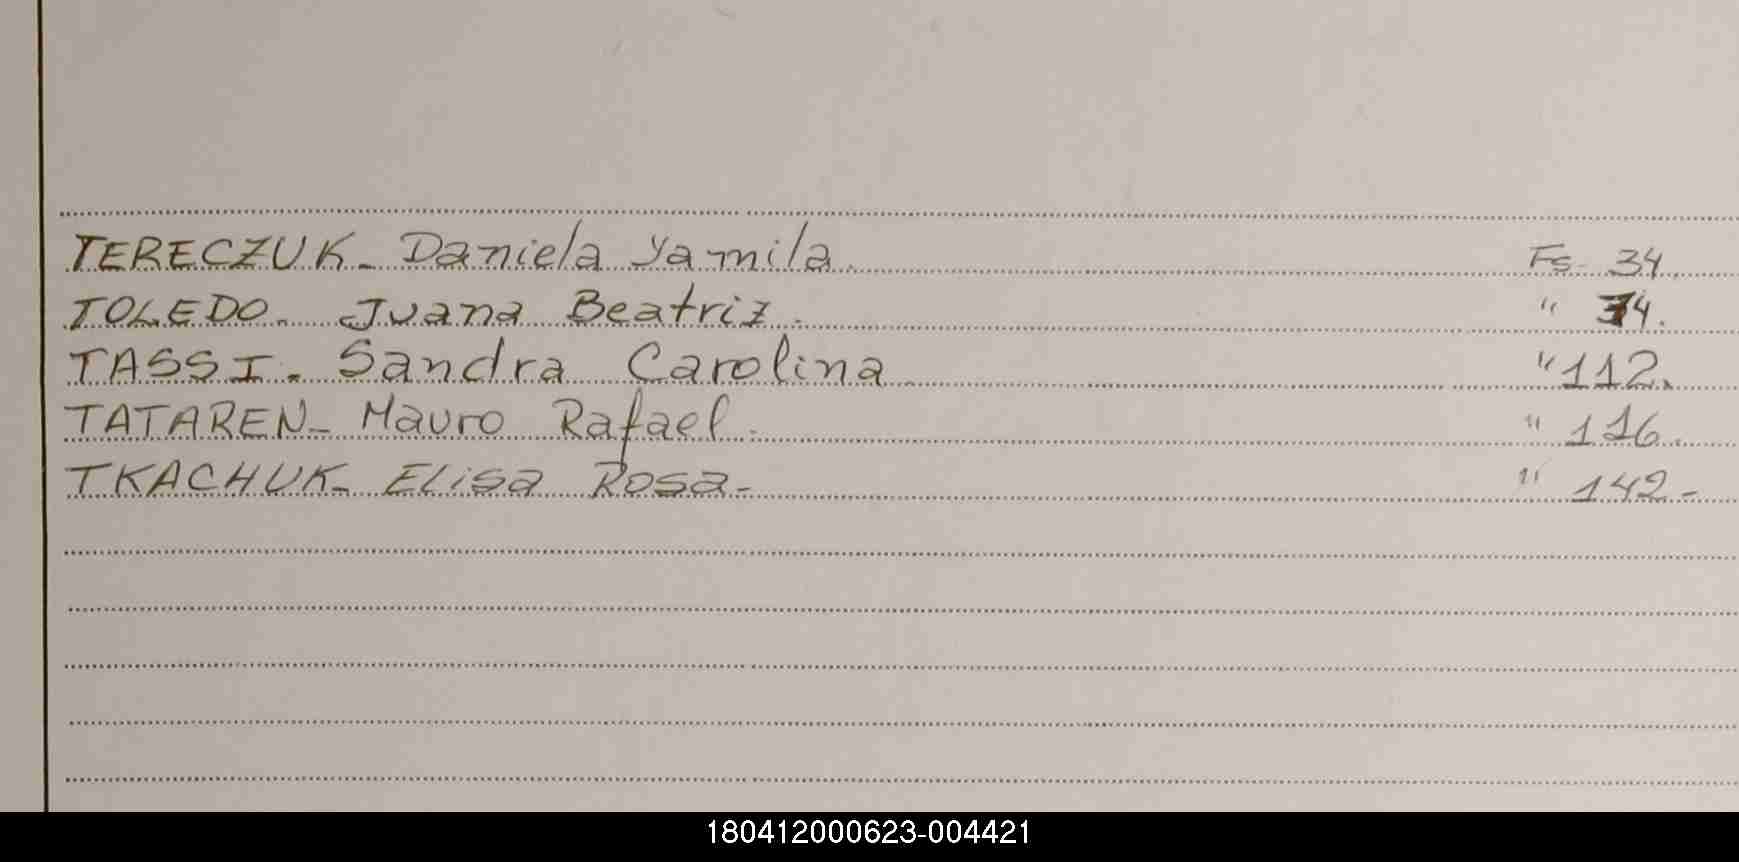 TERECZUK- Daniela Yamila. Fs- 34.
TOLEDO- Juana Beatriz. " 74.
TASSI. Sandra Carolina " 112.
TATAREN- Mauro Rafael. " 116.
TKACHUK- Elisa Rosa- " 142-
180412000623-004421